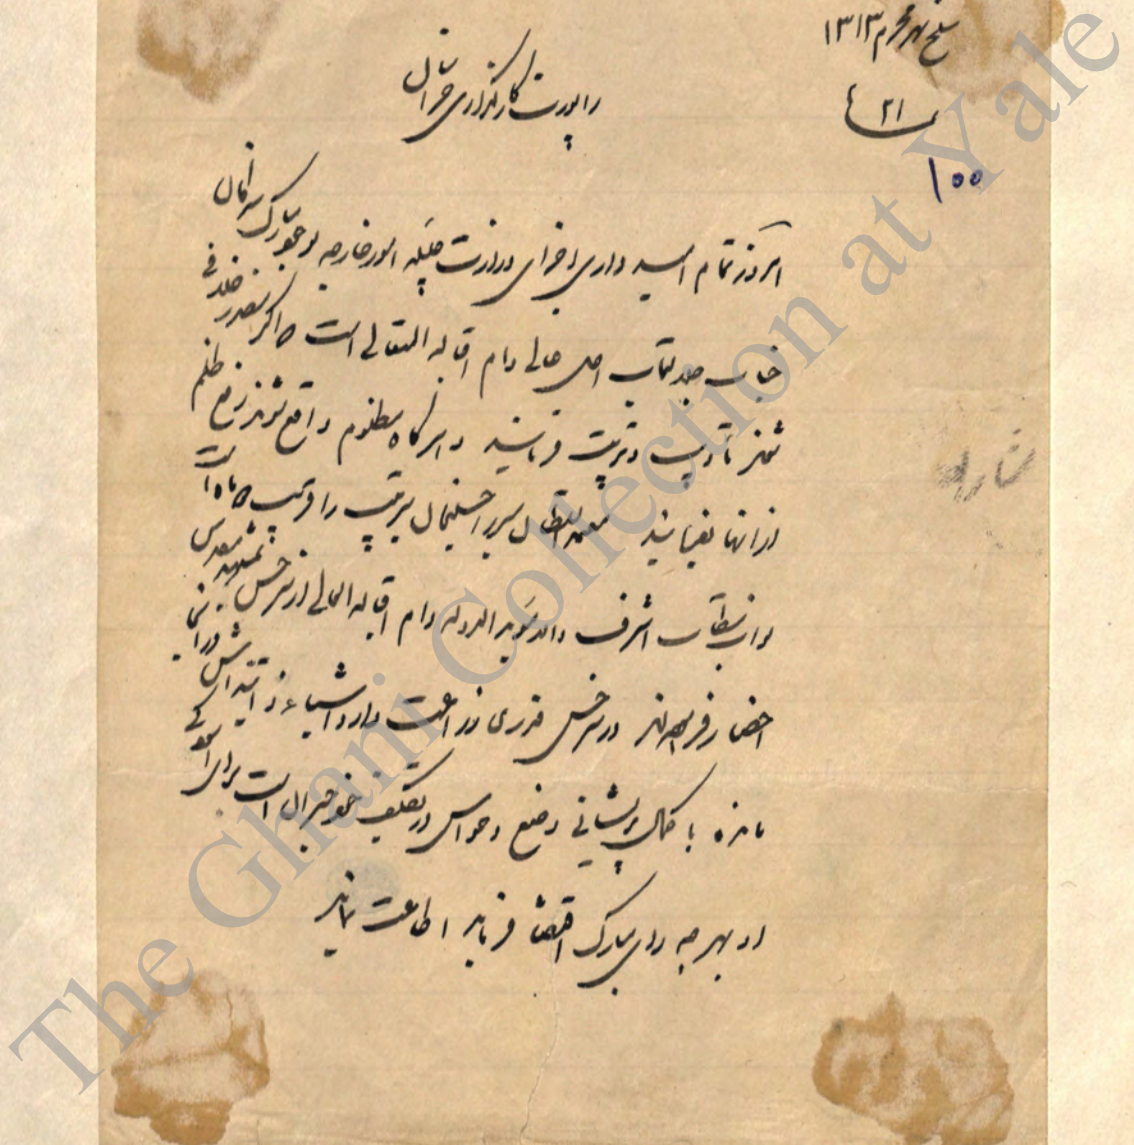 سلخ شهر محرم ۱۳۱۳
راپورت کارگذاری خراسان
۲۱
۱۰۰
امروز تمام امیدواری اجزای وزارت جلیله امور خارجه بوجود مبارک
جناب جلالتمآب اجل عالی دام اقباله المتعالی است که اگر مقصر
شوند تأدیب و تربیت فرمایند و هرگاه مظلوم واقع شوند رفع ظلم
از آنها بفرمایند میرزا را قریب است
نواب اشرف والا مؤیدالدوله دام اقباله العالی از سرخس بمشهد مقدس
احضار فرموده‌اند در سرخس قدری زراعت دارد
مانده با کمال پریشانی وضع و حواس در تکلیف خود حیران است برای
او بهر چه رای مبارک اقتضا فرماید اطاعت نماید
The Ghani Collection at Yale